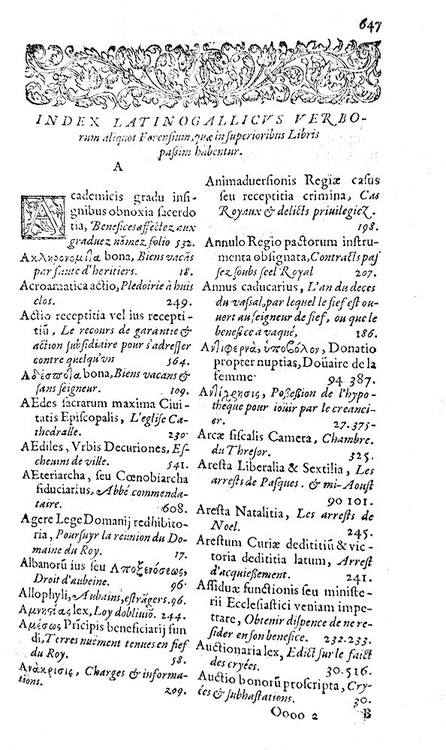 647
INDEX LATINOGALLICVS VERBO-
rum aliquot Forensium, quæ in superioribus Libris
passim habentur.
A
Academicis gradu insi-
gnibus obnoxia sacerdo
tia, Benefices affectez aux
graduez nõmez, folio 532.
Ακληρονομεῖα bona, Biens vacãs
par faute d'heritiers. 18.
Acroamatica actio, Pledoirie à huis
clos. 249.
Actio receptitia vel ius recepti-
tiũ, Le recours de garantie &
action subsidiaire pour s'adresser
contre quelqu'vn 564.
Αδέσποτα bona, Biens vacans &
sans seigneur. 109.
AEdes sacratum maxima Ciui-
tatis Episcopalis, L'eglise Ca-
thedralle. 230.
AEdiles, Vrbis Decuriones, Es-
cheuins de ville. 541.
AEteriarcha, seu Cœnobiarcha
fiduciarius, Abbé commenda-
taire. 608.
Agere Lege Domanij redhibito-
ria, Poursuyr la reunion du Do-
maine du Roy. 17.
Albanorũ ius seu Αποξενόσεως,
Droit d'aubeine. 96.
Allophyli, Aubains, estrãgers. 96.
Αμνηστίας lex, Loy d'obliuiõ. 244.
Αμέσως Prĩcipis beneficiarij fun
di, Terres nuement tenues en fief
du Roy. 58.
Ανάκρισις, Charges & informa-
tions. 209.
Animaduersionis Regiæ casus
seu receptitia crimina, Cas
Royaux & delicts priuilegieZ.
198.
Annulo Regio pactorum instru-
menta obsignata, Contracts pas
sez soubs seel Royal 207.
Annus caducarius, L'an du deces
du vassal, par lequel le fief est ou-
uert au seigneur de fief, ou que le
benefice a vaqué, 186.
Αντιφερνὰ, ὑπόβολον, Donatio
propter nuptias, Doüaire de la
femme 94 387.
Αντίχρησις, Possession de l'hypo-
theque pour iouir par le creanci-
er. 27.375-
Arcæ fiscalis Camera, Chambre.
du Thresor. 325.
Aresta Liberalia & Sextilia, Les
arrests de Pasques. & mi-Aoust
90 101.
Aresta Natalitia, Les arrests de
Noel. 245.
Arestum Curiæ dedititiũ & vic-
toria dedititia latum, Arrest
d'acquiessement. 241.
Assiduæ functionis seu ministe-
rii Ecclesiastici veniam impe-
trare, Obtenir dispence de ne re-
sider en son benefice. 232.233.
Auctionaria lex, Edict sur le faict
des cryées. 30.516.
Auctio bonorũ proscripta, Cry-
ées & subhastations. 30.
Oooo 2 B